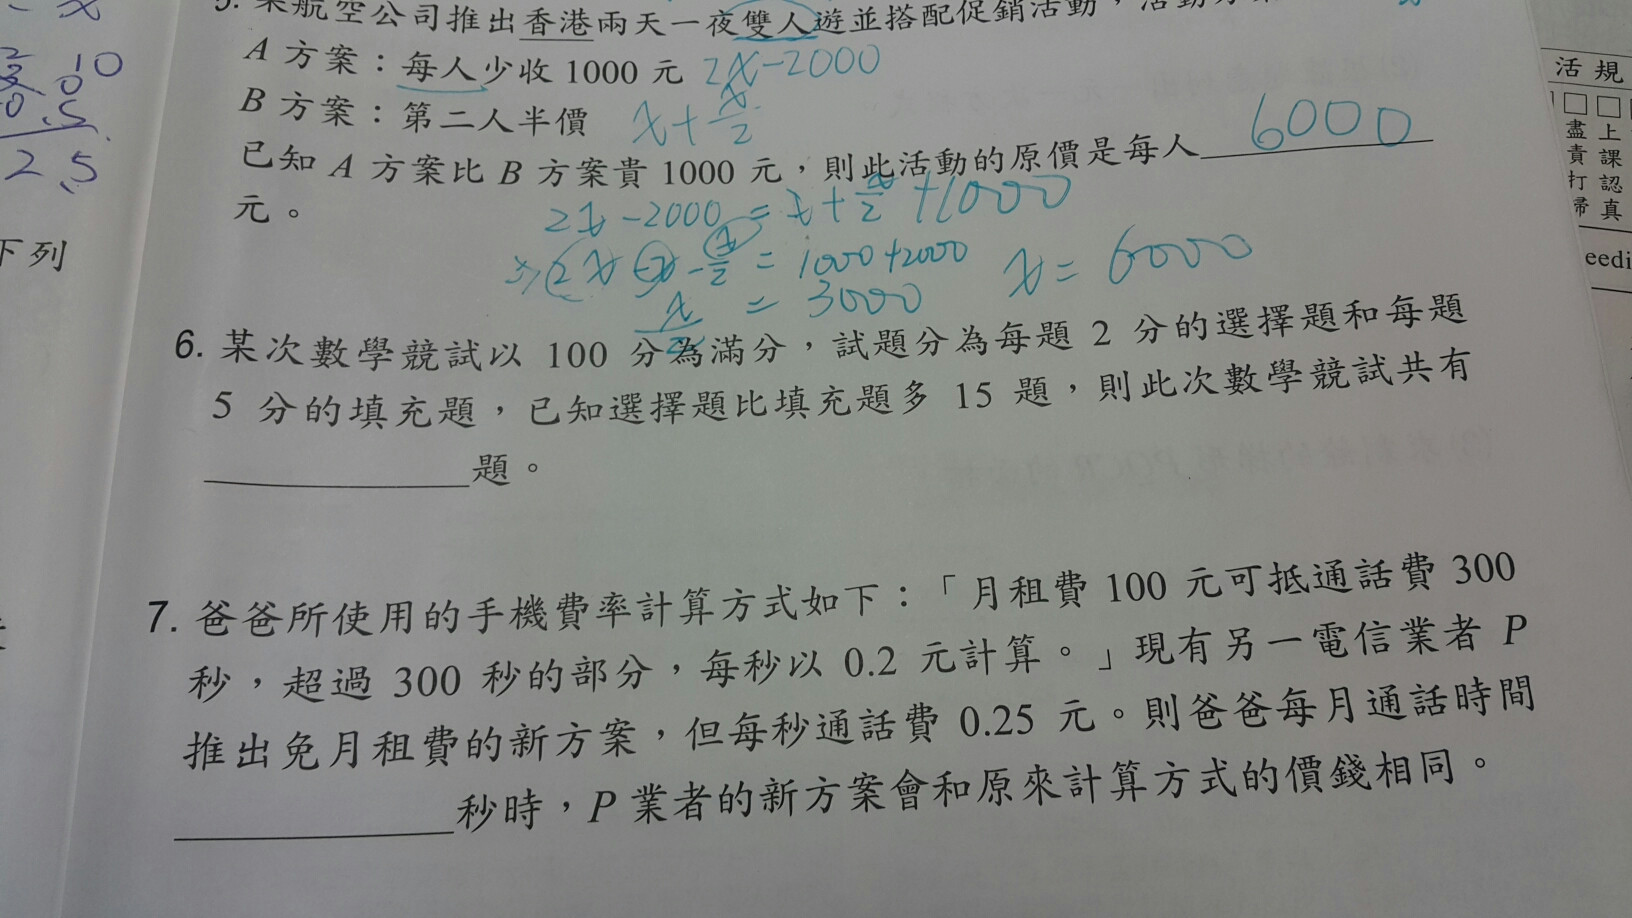 航空公司推出香港兩天一夜雙人遊並搭配促銷活動，活動方
A 方案：每人少收 1000 元 2x-2000
B 方案：第二人半價 x+x/2
已知 A 方案比 B 方案貴 1000 元，則此活動的原價是每人 6000
元。
2x-2000 = x+x/2+1000
⇒ 2x-x-x/2 = 1000+2000 x = 6000
x/2 = 3000
6. 某次數學競試以 100 分為滿分，試題分為每題 2 分的選擇題和每題
5 分的填充題，已知選擇題比填充題多 15 題，則此次數學競試共有
題。
7. 爸爸所使用的手機費率計算方式如下：「月租費 100 元可抵通話費 300
秒，超過 300 秒的部分，每秒以 0.2 元計算。」現有另一電信業者 P
推出免月租費的新方案，但每秒通話費 0.25 元。則爸爸每月通話時間
秒時，P 業者的新方案會和原來計算方式的價錢相同。
下列
2.5
活 規
□ □
盡 上
責 課
打 認
掃 真
eedi